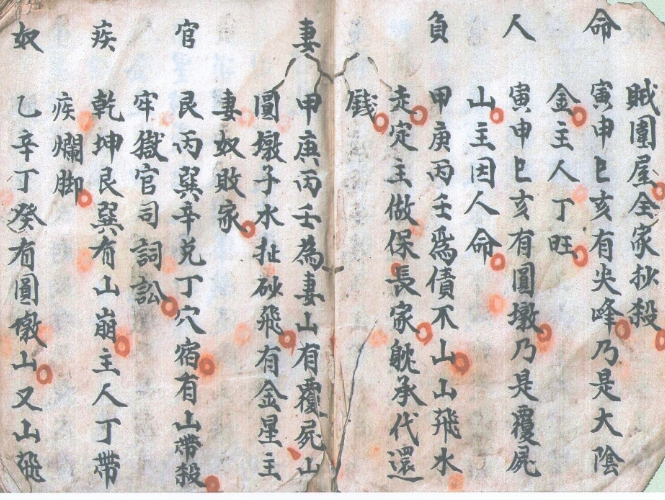 賊圍屋全家抄殺
命 寅申巳亥有尖峰乃是大陰
金主人丁旺
人 寅申巳亥有圓墩乃是覆屍
山主因人命
負 甲庚丙壬爲債不山山飛水
走定主做保長家躭承代還
錢
妻 甲庚丙壬為妻山有覆屍山
圓墩子水扯砂飛有金星主
妻奴敗家
官 艮丙巽辛兌丁穴宿有山帶殺
牢獄官司詞訟
疾 乾坤艮巽有山崩主人丁帶
疾爛脚
奴 乙辛丁癸有圓墩山又山飛